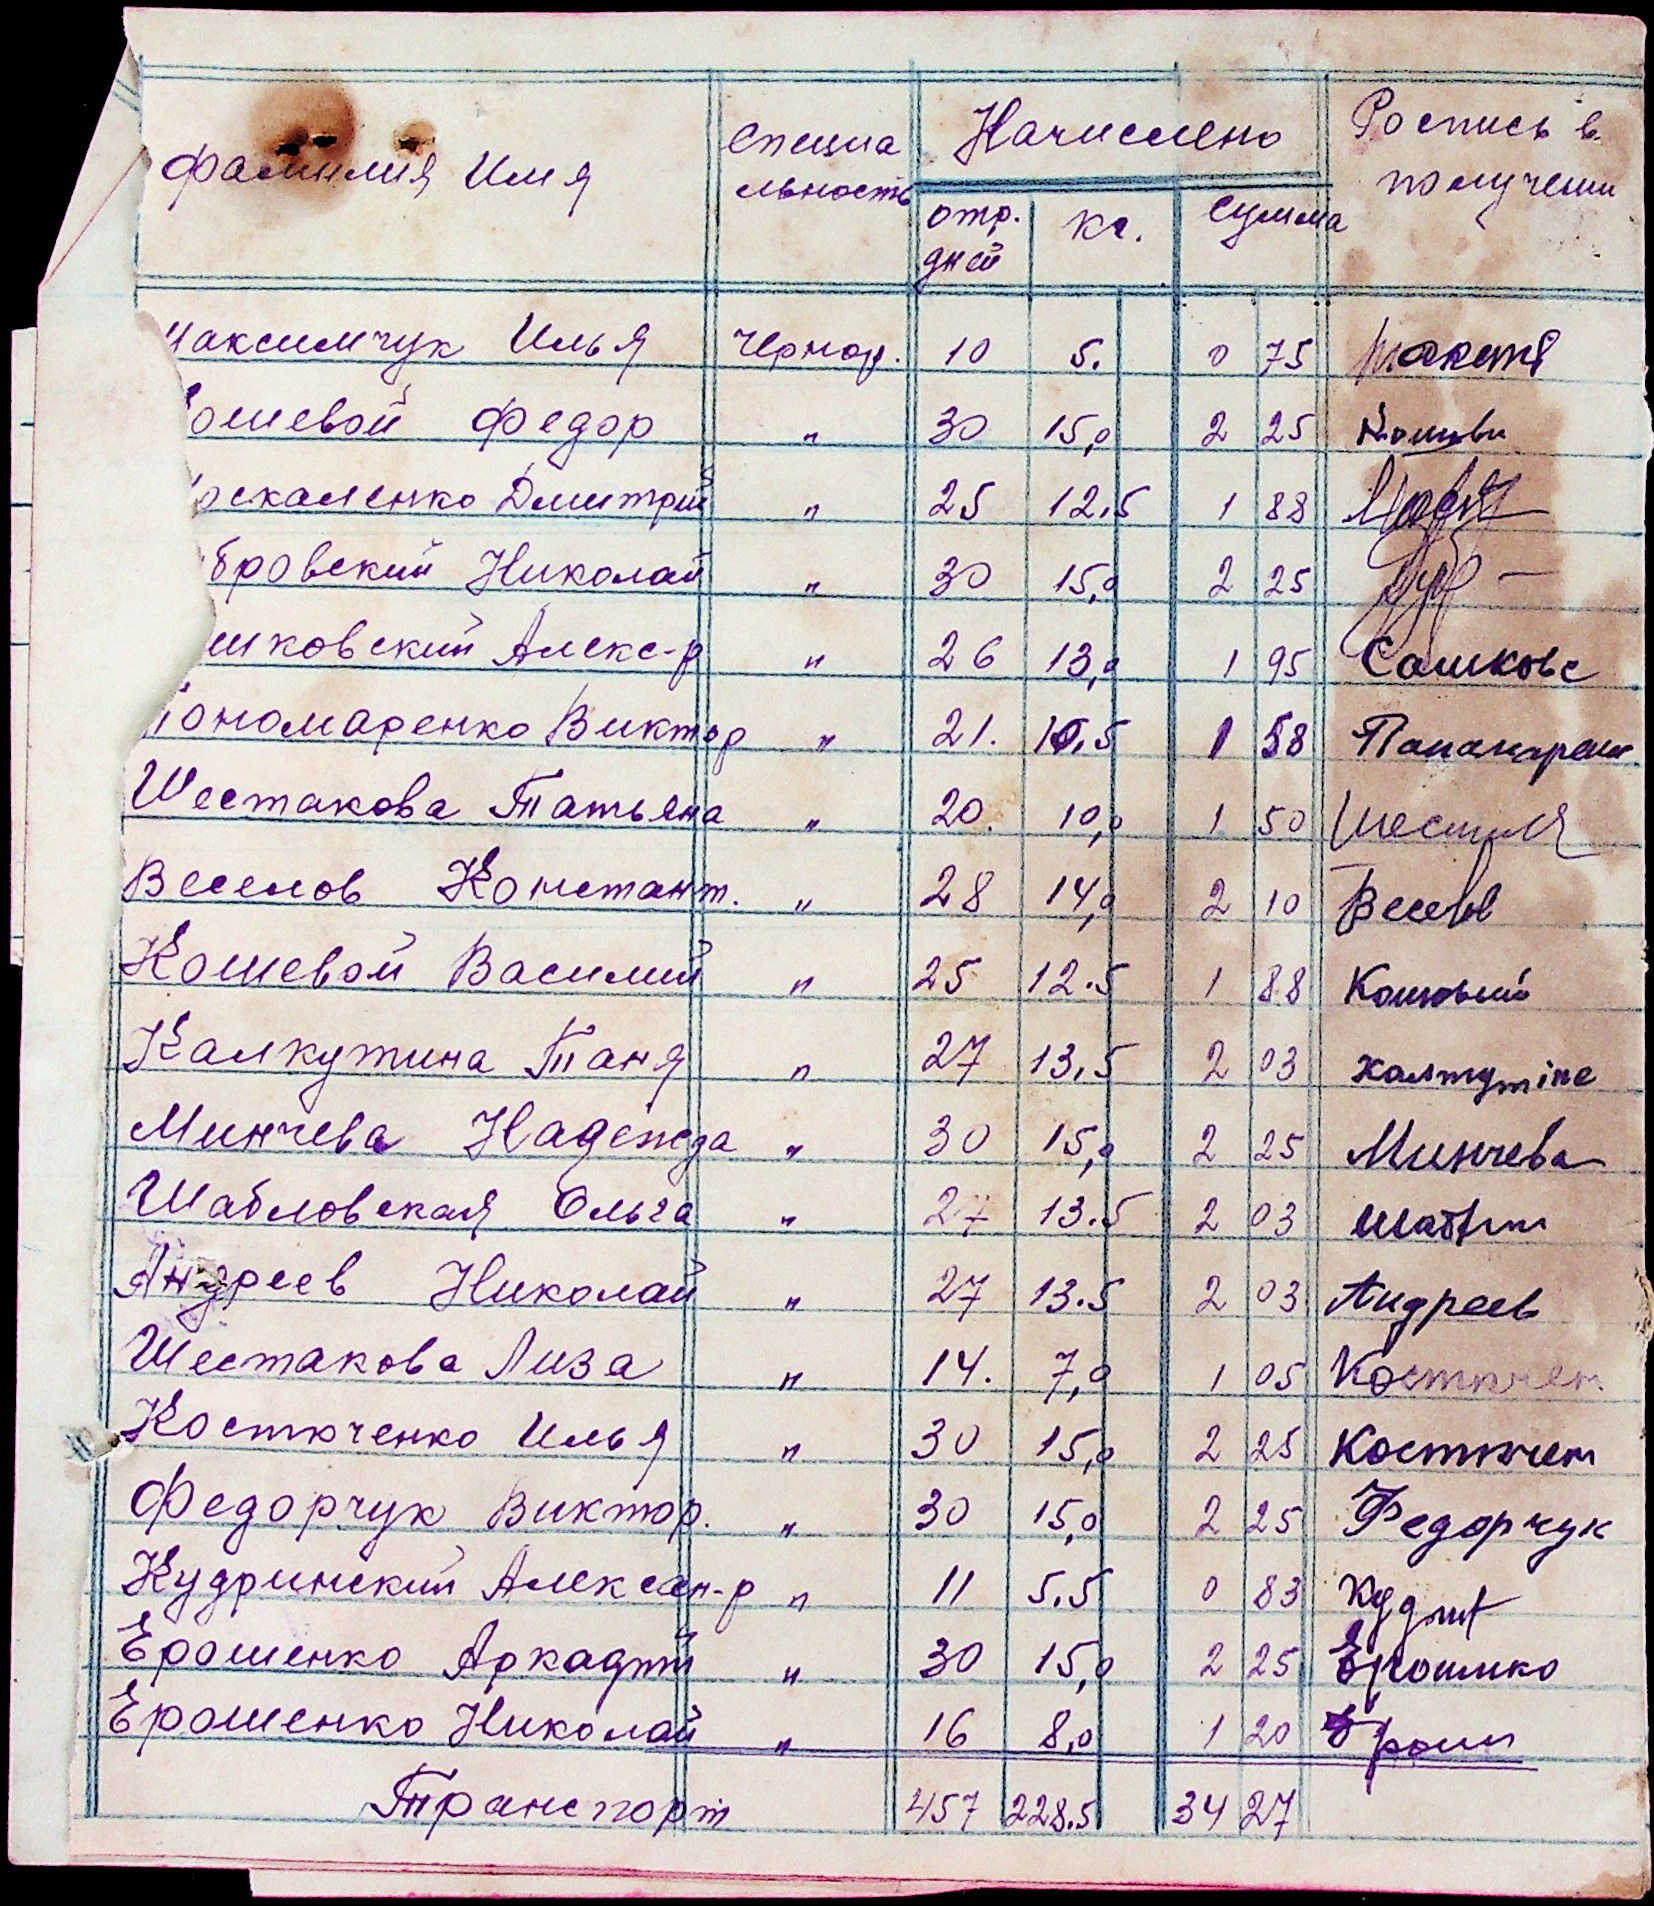 Фамилия Имя Специа Начислено Роспись в
льность получении
отр. кг. сумма
дней
Максимчук Илья чернор. 10 5. 0 75
Кошевой Федор " 30 15,0 2 25
Москаленко Дмитрий " 25 12.5 1 88
бровский Николай " 30 15,0 2 25
шковский Алекс-р " 26 13,0 1 95 Сашковс
Пономаренко Виктор " 21. 10.5 1 58
Шестакова Татьяна " 20. 10,0 1 50
Веселов Констант. " 28 14,0 2 10
Кошевой Василий " 25 12.5 1 88
Калкутина Таня " 27 13,5 2 03
Минчева Надежда " 30 15,0 2 25 Минчева
Шабловская Ольга " 27 13.5 2 03
Андреев Николай " 27 13.5 2 03 Андреев
Шестакова Лиза " 14. 7,0 1 05 Костючен
Костюченко Илья " 30 15,0 2 25 Костючен
Федорчук Виктор. " 30 15,0 2 25 Федорчук
Кудринский Алексан-р " 11 5.5 0 83
Ерошенко Аркадий " 30 15,0 2 25 Ерошнко
Ерошенко Николай " 16 8,0 1 20 Ерош
Транспорт 457 228.5 34 27